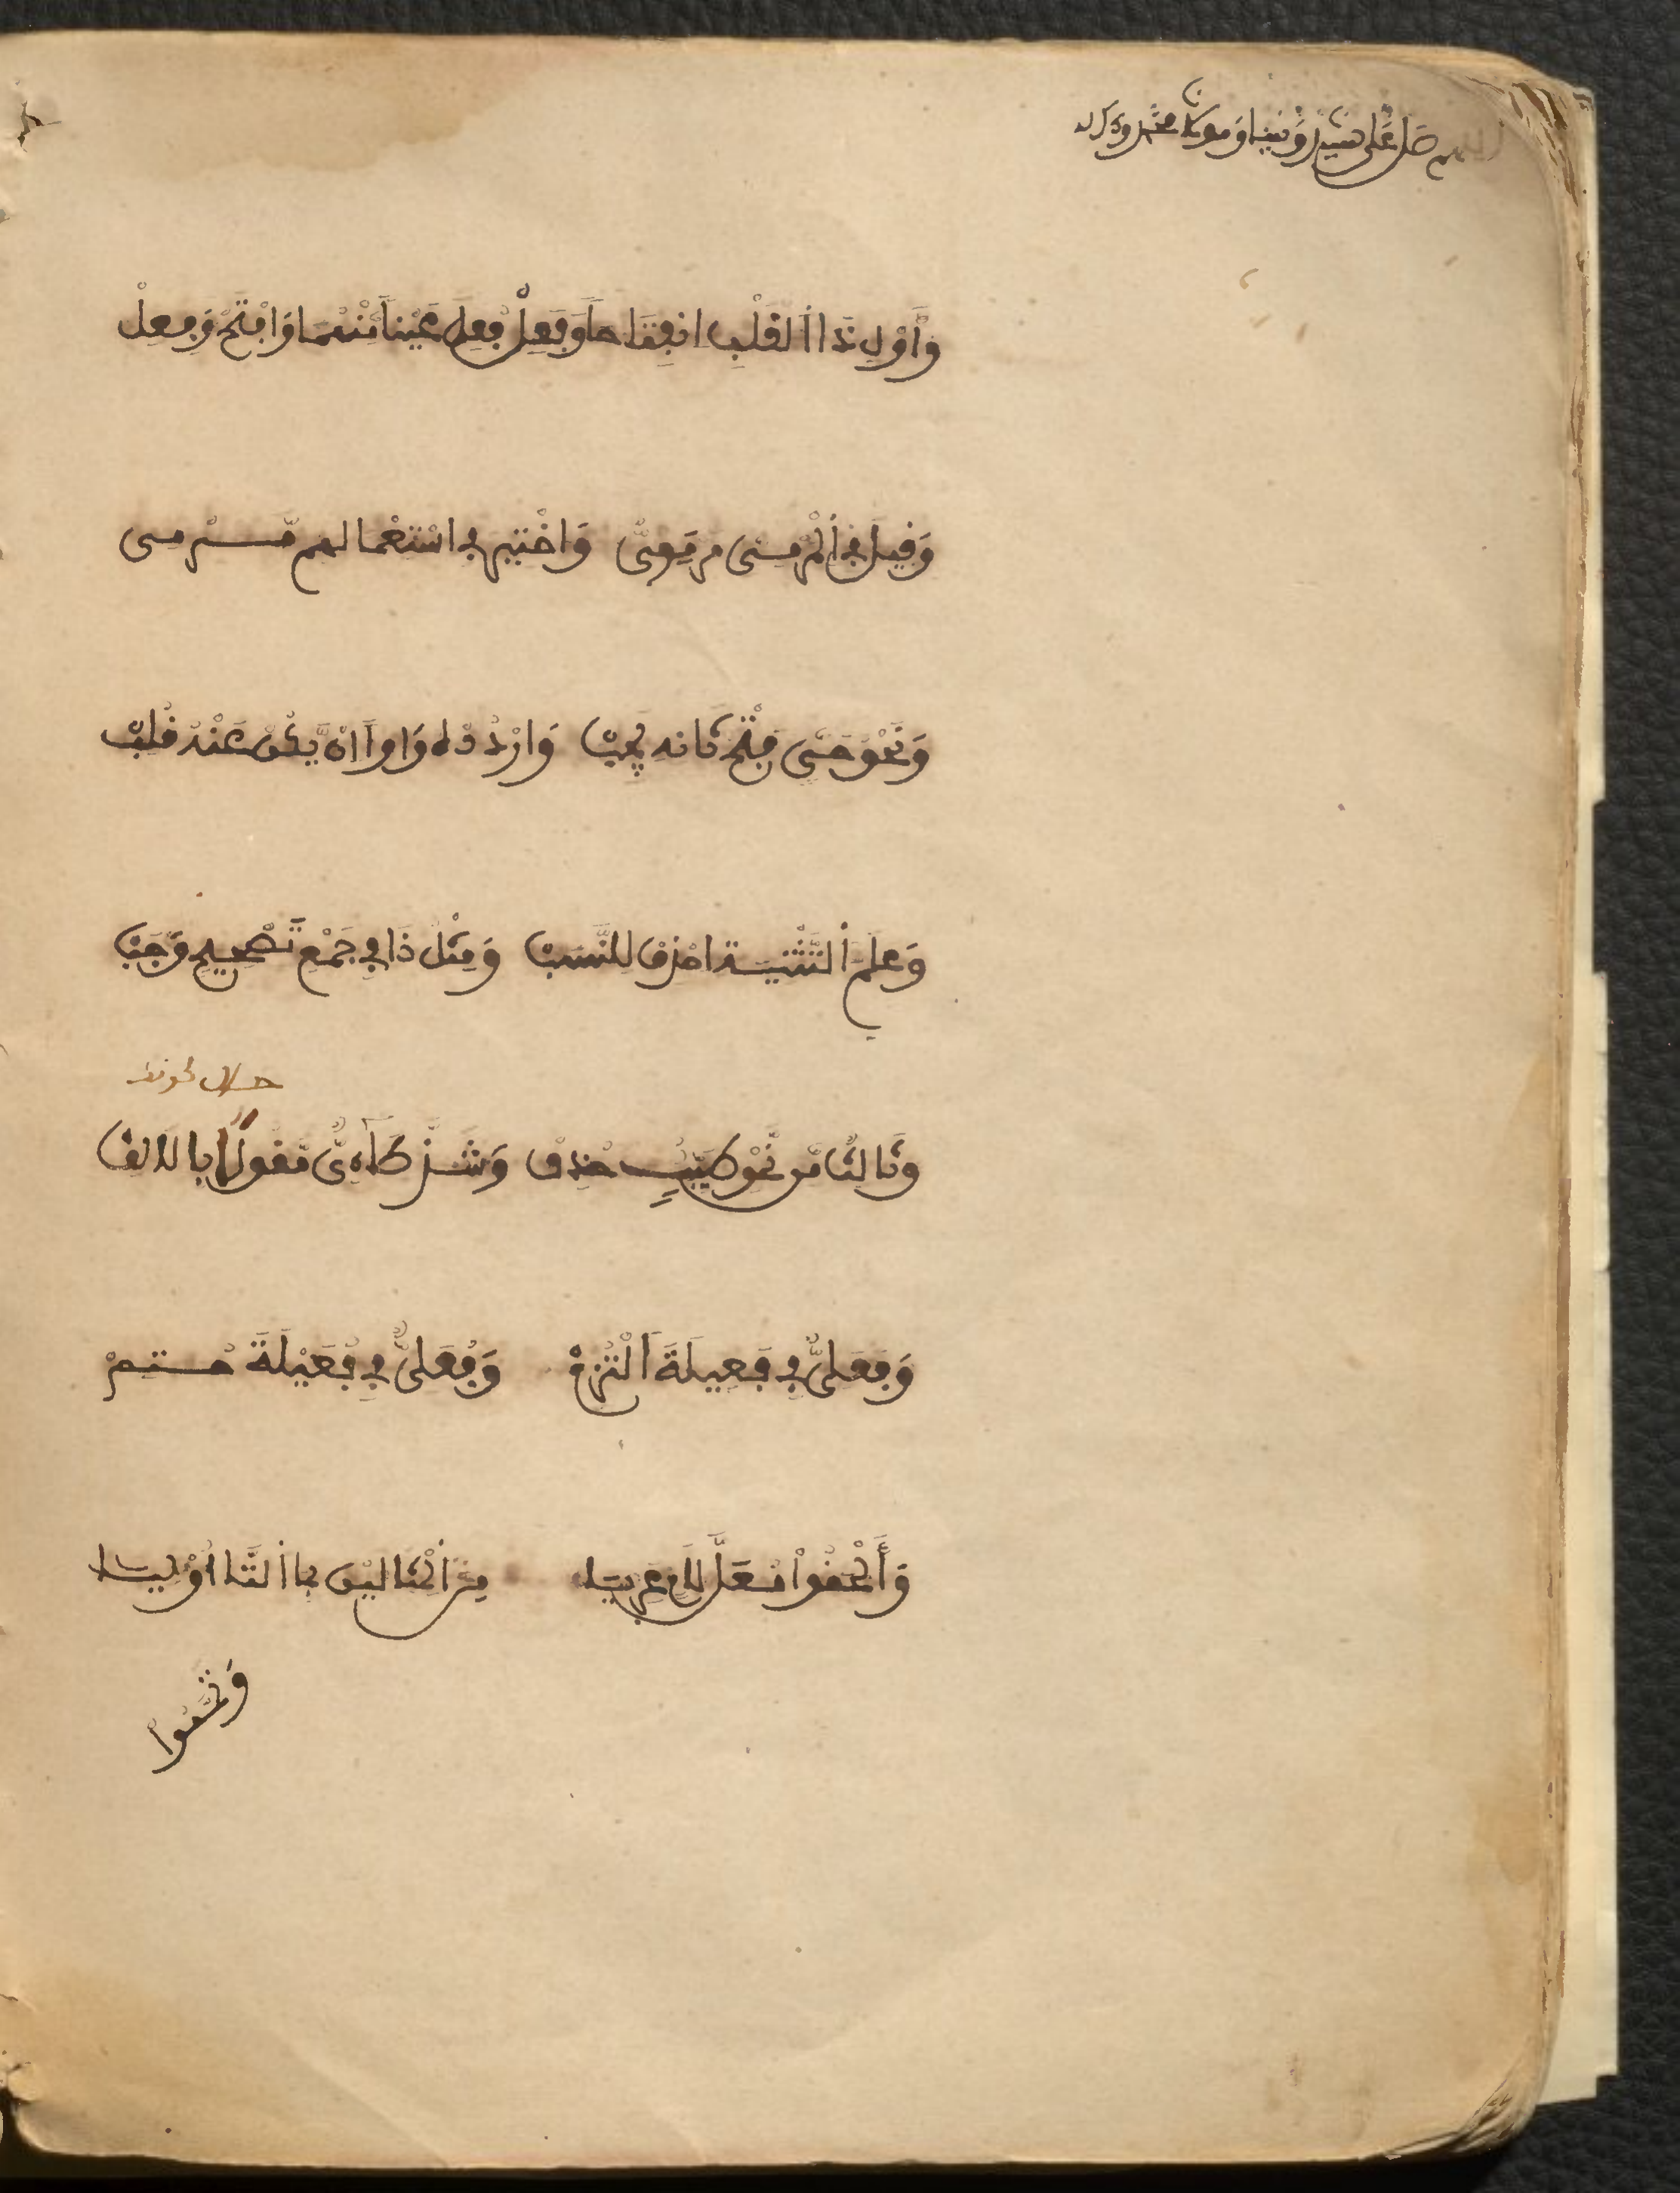 اللهم صل على سيدنا ونبينا ومولانا محمد وءاله
وَأَوْلِ ذَا اَلْقَلْبِ انْفِتَاحاً وَفَعِلْ وفُعِلَ عَيْناً مِّنْهُمَا وَافْتَحْ وَفِعِلْ
وَقِيلَ فِي اَلْمَرْمِى مَرْمَوِىُّ وَاخْتِيرَ فِي اسْتِعْمَالِهِم مَّرْمِى
وَنَحْوُ حَىٍّ فَتْحُ ثَانِهِ يَجِبْ وَارْدُدْهُ وَاواً اِنْ يَّكُنْ عَنْهُ قُلِبْ
وَعَلَمَ اَلتَّثْنِيَةِ احْذِفْ لِلنَّسَبْ وَمِثْلُ ذَا فِي جَمْعِ تَصْحِيحٍ وَّجَبْ
وثَالِثٌ مِّن نَّحْوِ طَيِّبٍ حُذِفْ وَشَذَّ طَاءِىٌّ مَّقُولاً بِالَالِفْ
وَفَعَلِىٌّ فِي فَعِيلَةَ اَلْتُزِمْ وَفُعَلِىٌّ فِي فُعَيْلَةَ حُتِمْ
وَأَلْحَقُواْ مُعَلَّ لَامٍ عَرِيَا مِنَ اَلْمِثَالَيْنِ بِمَا اَلتَّا أُوْلِيَا
وَتَمَّمُواْ